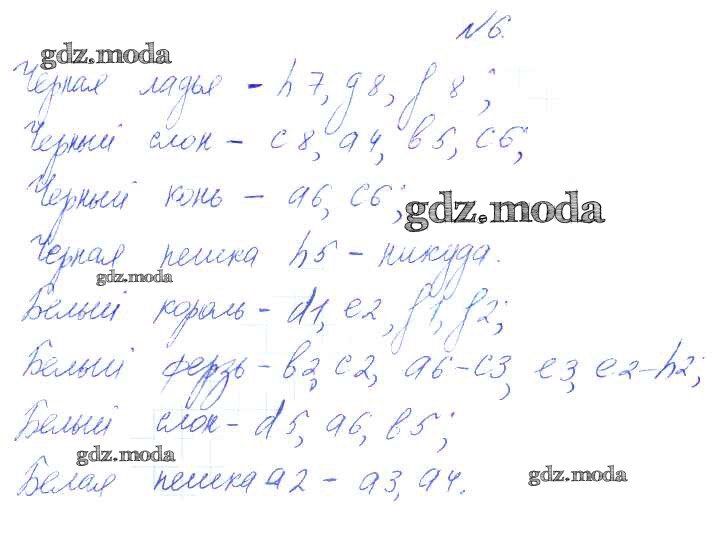 №6.
gdz.moda
Черная ладья - h7, g8, f8;
Черный слон - c8, a4, b5, c6;
Черный конь - a6, c6;
gdz.moda
Черная пешка h5 - никуда.
gdz.moda
Белый король - d1, e2, f1, f2;
Белый ферзь - b2, c2, a6-c3, e3, e2-h2;
Белый слон - d5, a6, b5;
gdz.moda
Белая пешка a2 - a3, a4.
gdz.moda